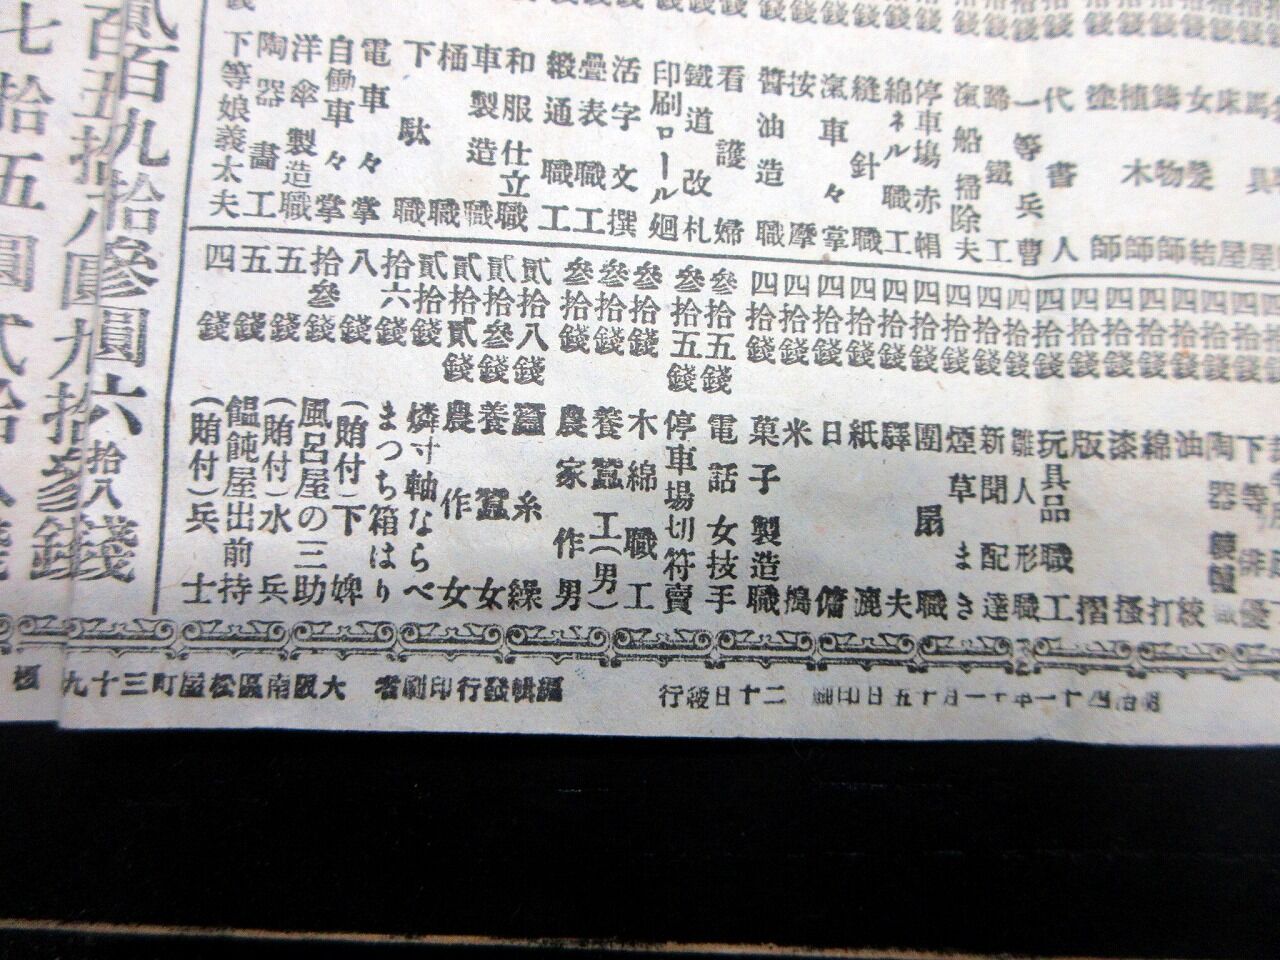 停車場赤帽
綿ネル職工
縫針職
滊車々掌
按摩
醬油造職
看護婦
鐵道改札
印刷ロール廻
活字文撰
疊表職工
緞通職工
和服仕立職
車製造職
桶職
下駄職
電車々掌
自働車々掌
洋傘製造職
陶器畵工
下等娘義太夫
滊船掃除夫
蹄鐵工
一等兵曹
代書人
塗師
植木師
鑄物師
女髮結
床屋
馬具屋
四拾錢 下等俳優
四拾錢 陶器
四拾錢 油絞
四拾錢 綿打
四拾錢 漆搔
四拾錢 版摺
四拾錢 玩具品職工
四拾錢 雛人形職
四拾錢 新聞配達
四拾錢 煙草まき
四拾錢 團扇職
四拾錢 驛夫
四拾錢 紙漉
四拾錢 日傭
四拾錢 米搗
四拾錢 菓子製造職
參拾五錢 電話女技手
參拾五錢 停車場切符賣
參拾錢 木綿職工
參拾錢 養蠶工(男)
參拾錢 農家作男
貳拾八錢 蠶糸繰
貳拾參錢 養蠶女
貳拾貳錢 農作女
貳拾錢 燐寸軸ならべ
拾六錢 まつち箱はり
八錢 (賄付)下婢
拾參錢 風呂屋の三助
五錢 (賄付)水兵
五錢 饂飩屋出前持
四錢 (賄付)兵士
貳百九拾參圓六拾八錢
百五拾八圓九拾參錢
七拾五圓弍拾八錢
明治四十一年十一月十五日印刷 二十日發行
編輯發行印刷者 大阪南區松屋町三十九